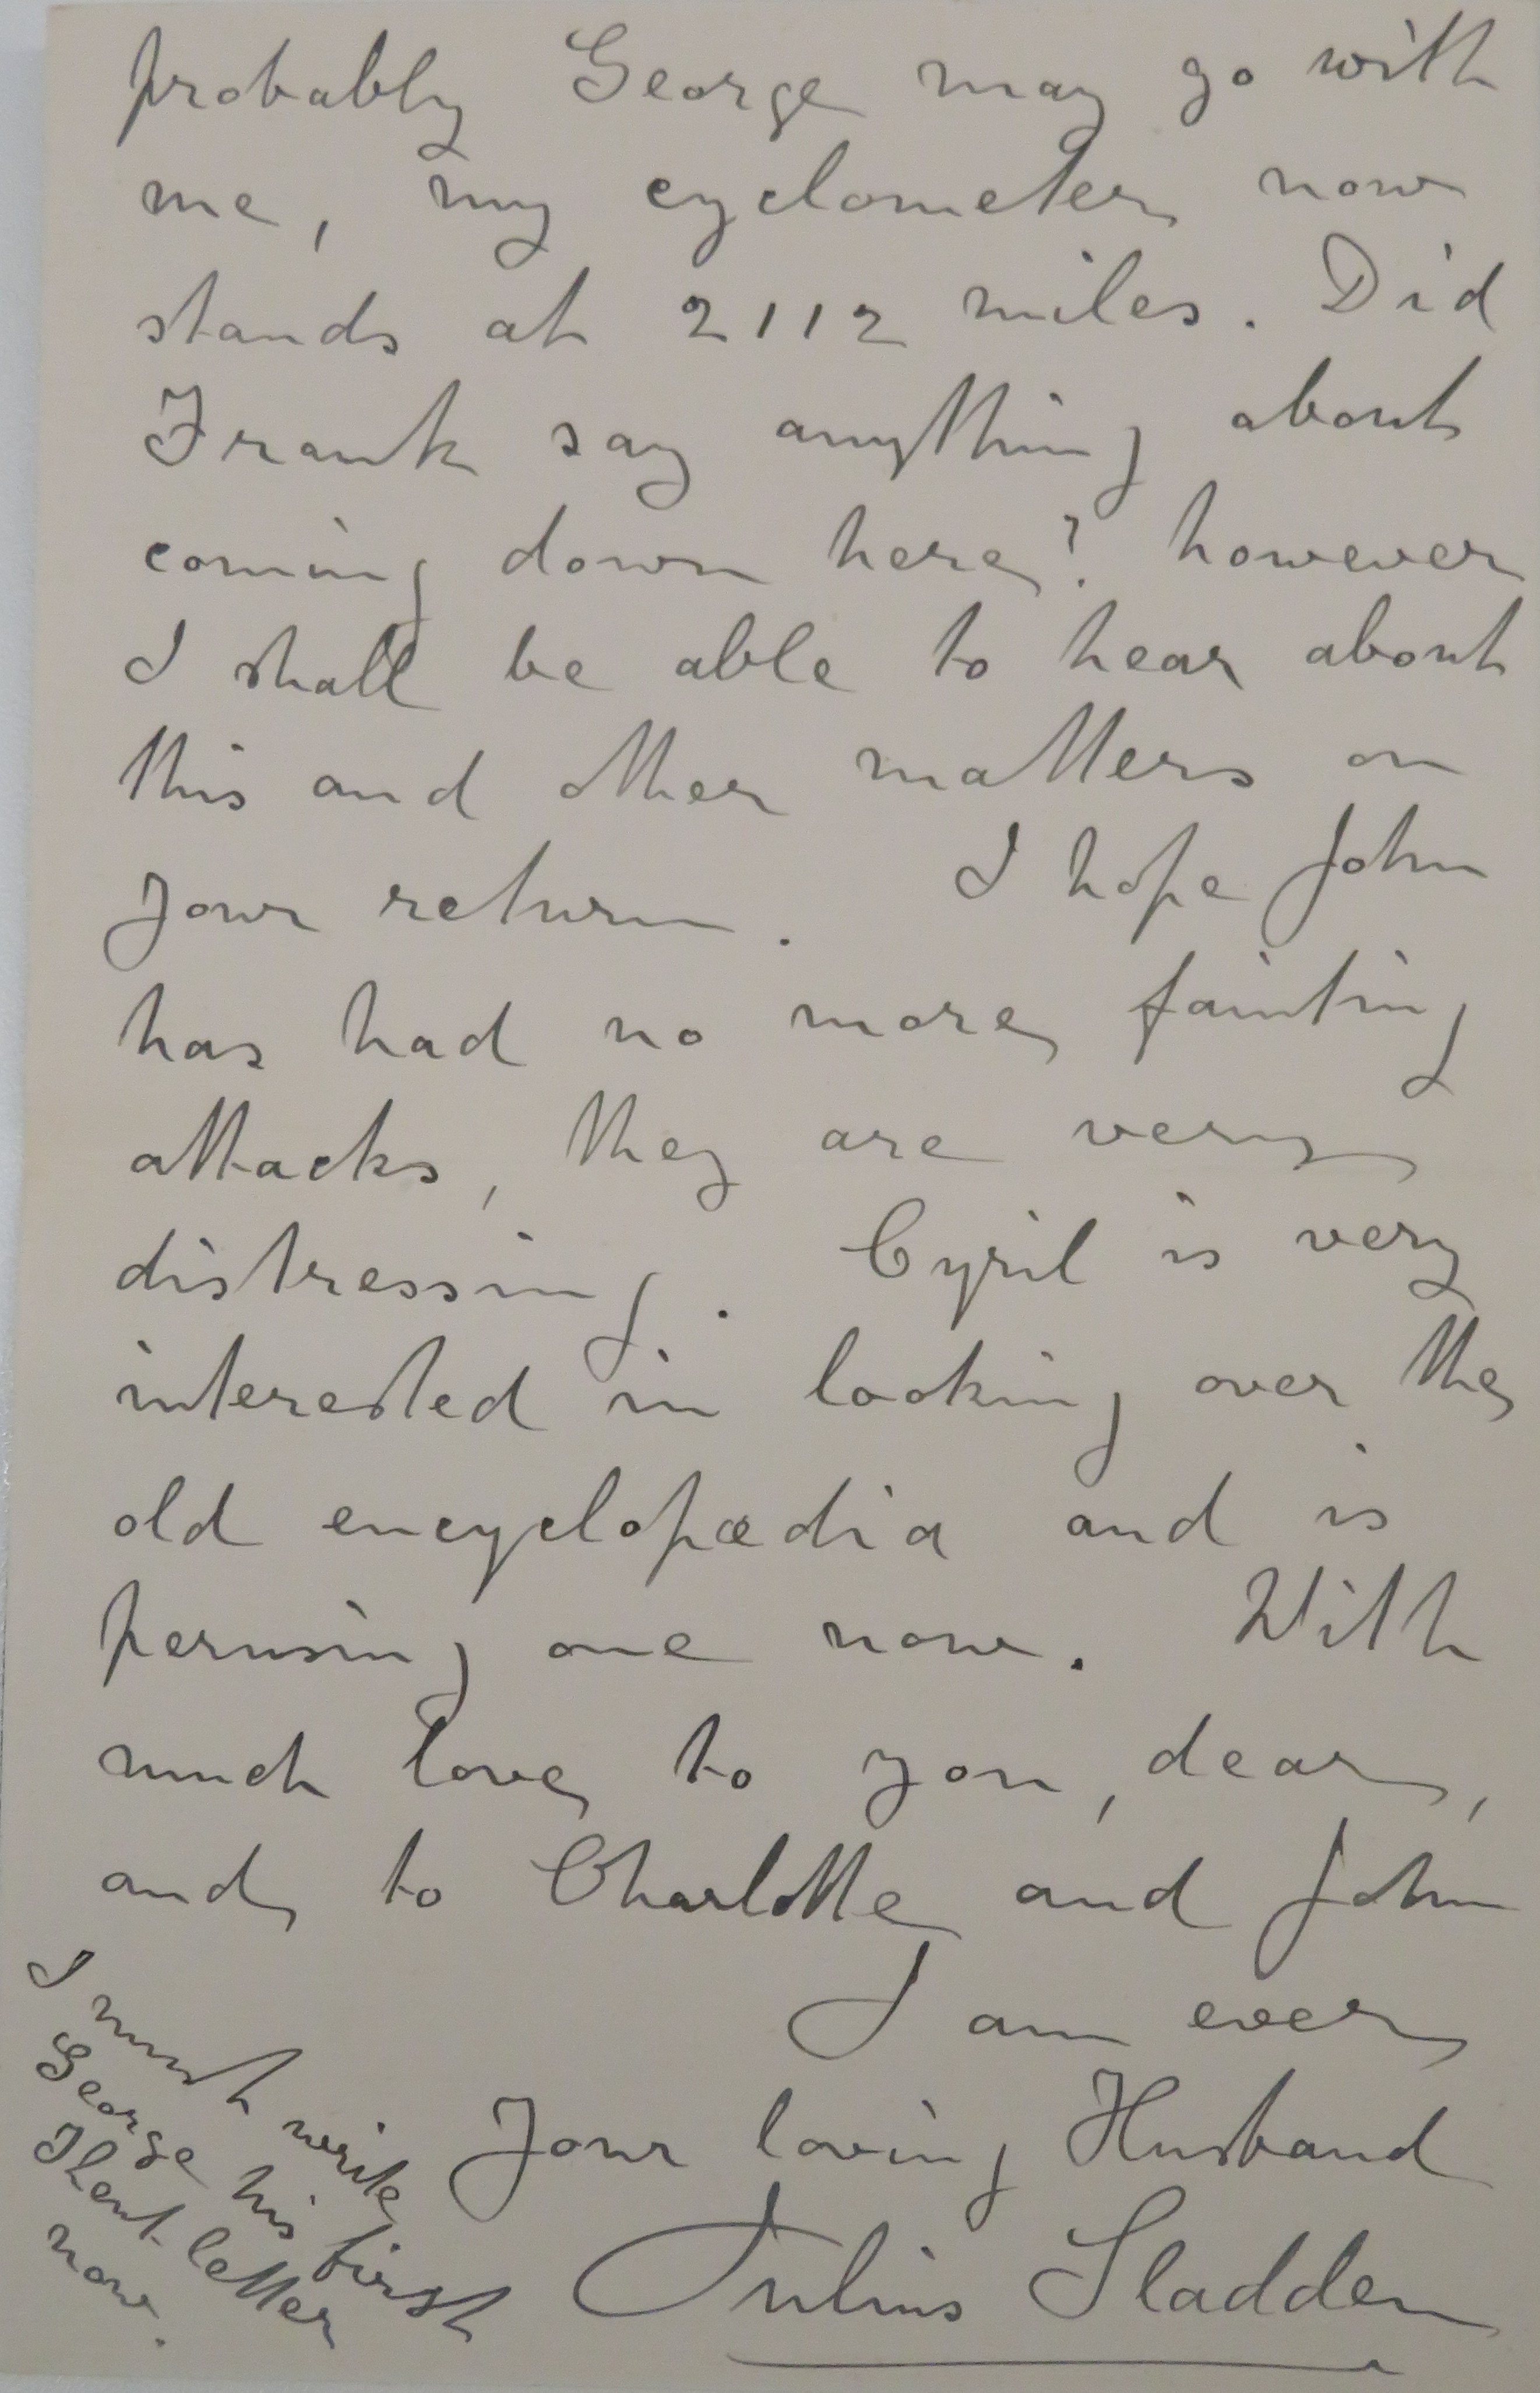 probably George may go with
me, my cyclometer now
stands at 2112 miles. Did
Frank say anything about
coming down here? however
I shall be able to hear about
this and other matters on
your return. I hope John
has had no more fainting
attacks, they are very
distressing. Cyril is very
interested in looking over the
old encyclopædia and is
perusing one now. With
much love to you, dear,
and to Charlotte and John
I am ever
Your loving Husband
Julius Sladden
I must write
George his first
letter
now.